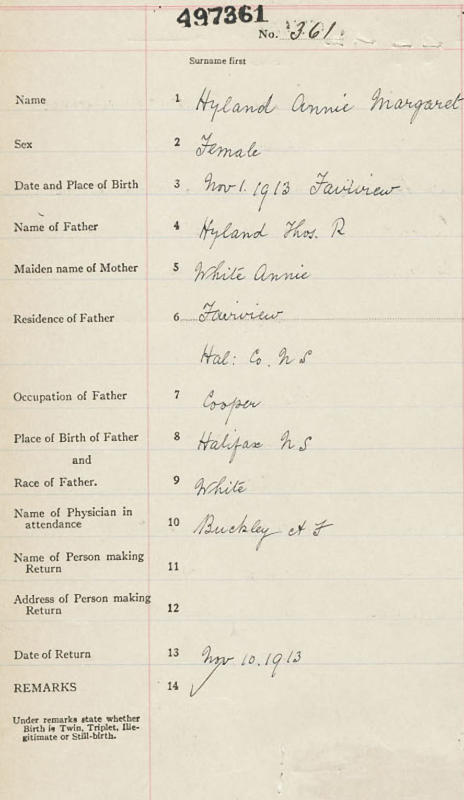 497361
No. 361.
Surname first
Name 1 Hyland Annie Margaret
Sex 2 Female
Date and Place of Birth 3 Nov 1. 1913 Fairview
Name of Father 4 Hyland Thos. R
Maiden name of Mother 5 White Annie
Residence of Father 6 Fairview
Hal: Co. N S
Occupation of Father 7 Cooper
Place of Birth of Father 8 Halifax N S
and
Race of Father. 9 White
Name of Physician in
attendance 10 Buckley A F
Name of Person making
Return 11
Address of Person making
Return 12
Date of Return 13 Nov 10. 1913
REMARKS 14
Under remarks state whether
Birth is Twin, Triplet, Ille-
gitimate or Still-birth.